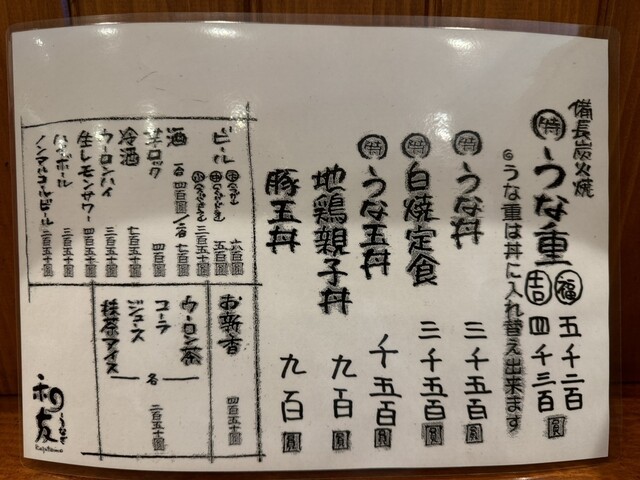 備長炭火焼
㊕うな重 ㊗福 五千二百
吉 四千三百圓
◎うな重は丼に入れ替え出来ます
㊕うな丼 三千五百圓
㊕白焼定食 三千五百圓
㊕うな玉丼 千五百圓
地鶏親子丼 九百圓
豚玉丼 九百圓
ビール
六百圓
五百圓
三百五十圓
酒 一合 四百圓/二合 七百圓
芋ロック 四百圓
冷酒 七百五十圓
ウーロンハイ 三百五十圓
生レモンサワー 四百五十圓
ハイボール 三百五十圓
ノンアルコールビール 三百五十圓
お新香 四百五十圓
ウーロン茶
コーラ
ジュース
抹茶アイス
各 二百五十圓
和友
うなぎ